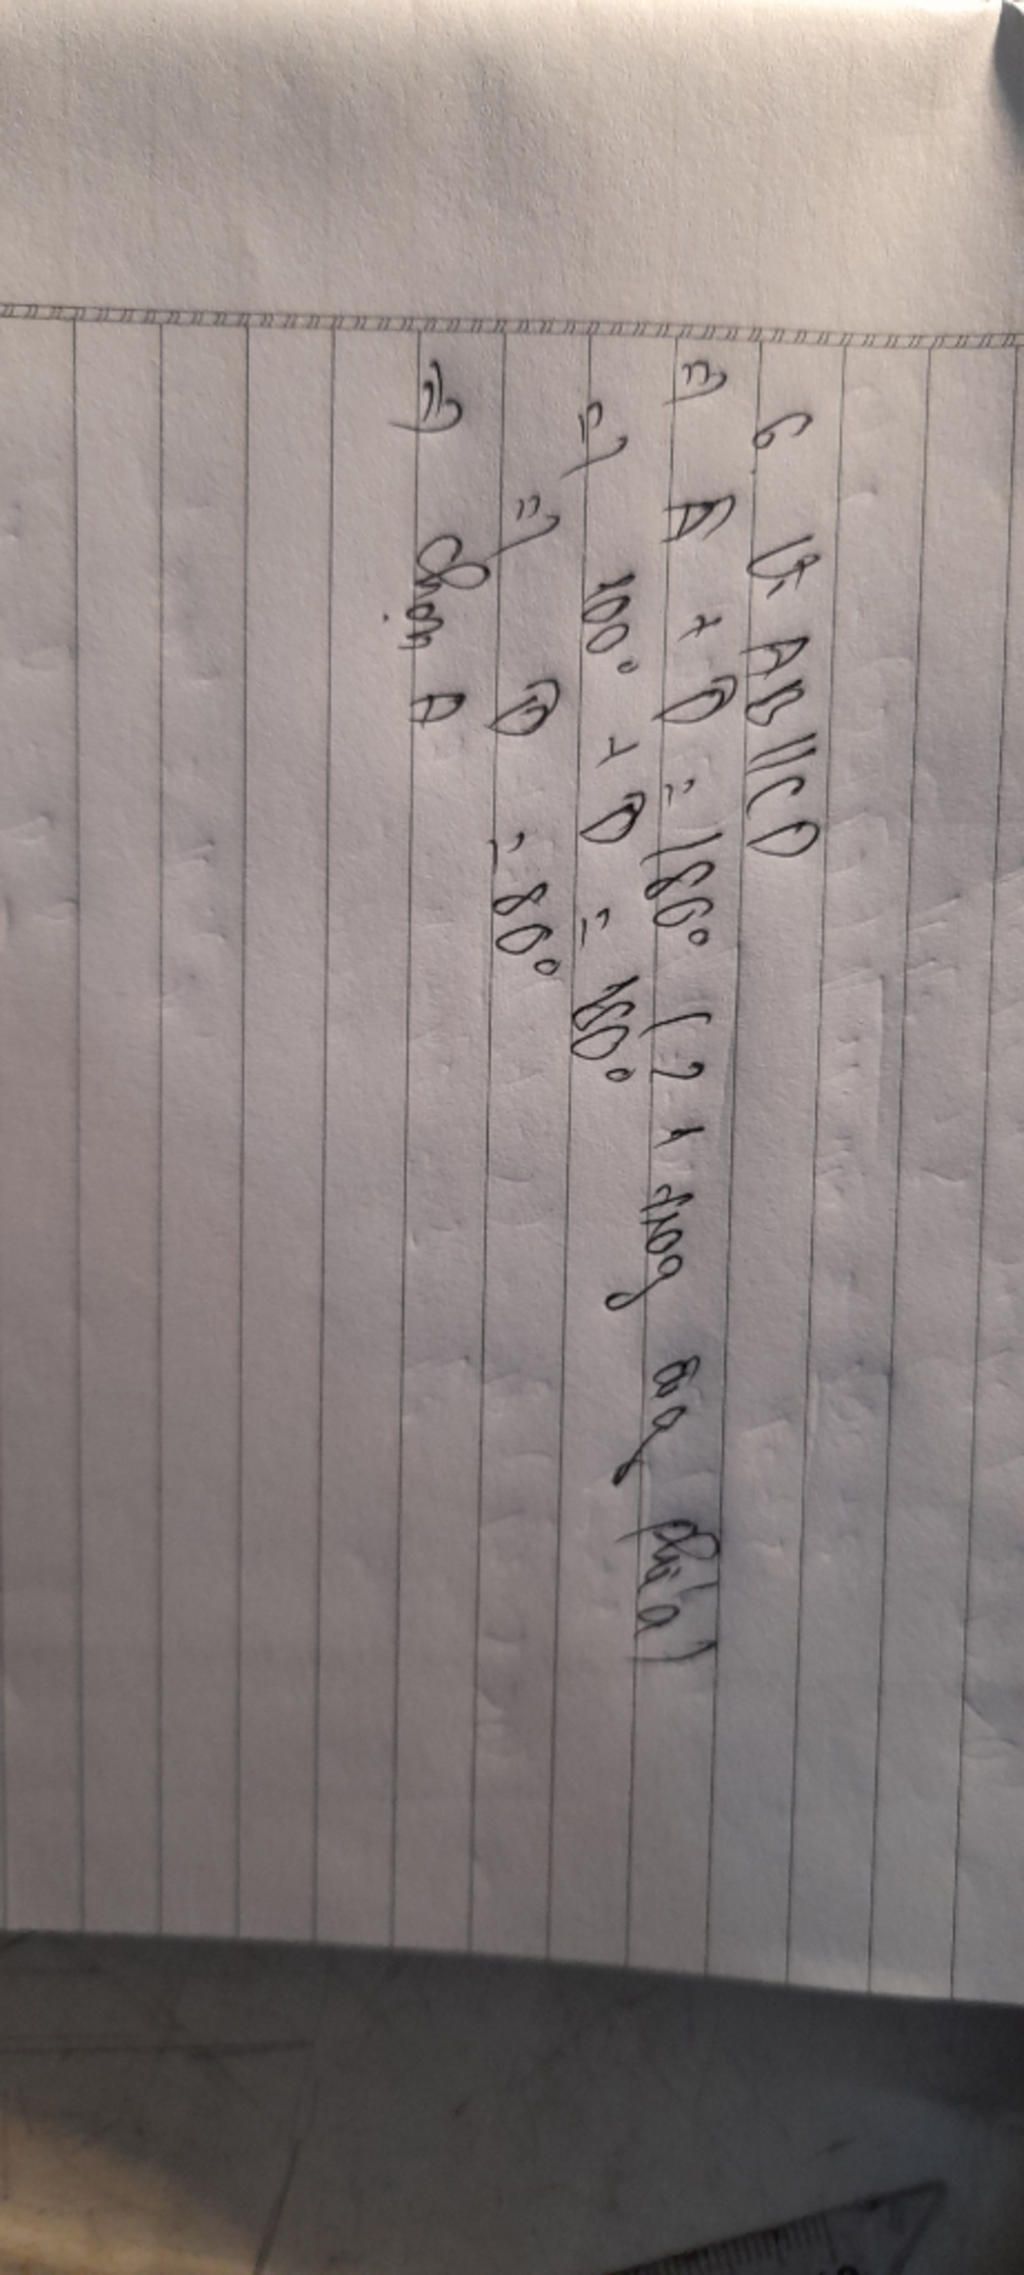 6 Vì AB//CD
=> Â + D̂ = 180° (2 t trog cùg phía)
=> 100° + D̂ = 180°
=> D̂ = 80°
=> Chọn A